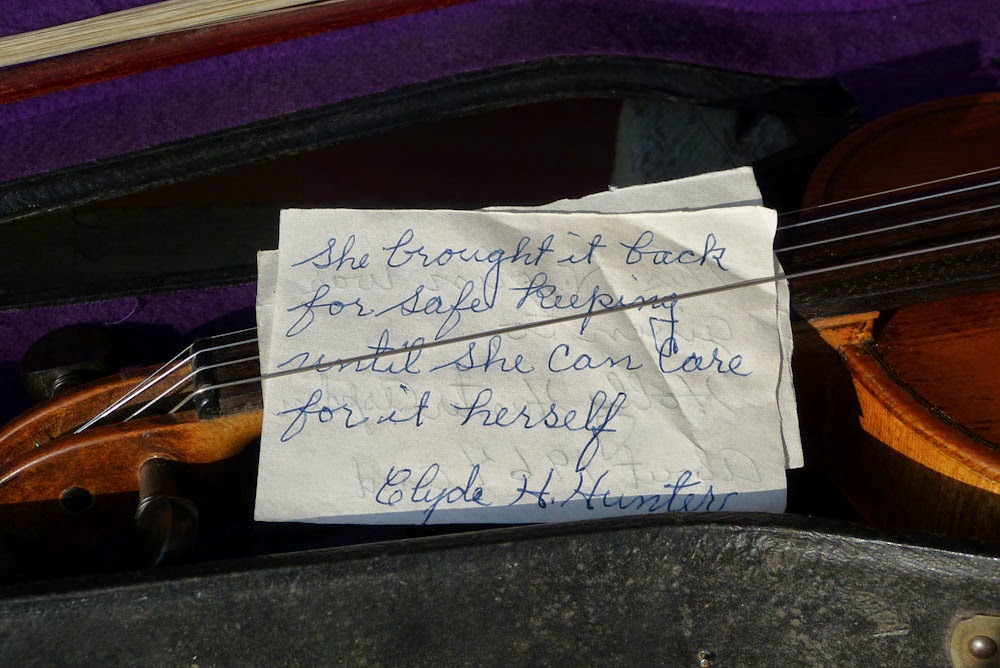 She brought it back
for safe keeping
until she can care
for it herself
Clyde H. Hunter